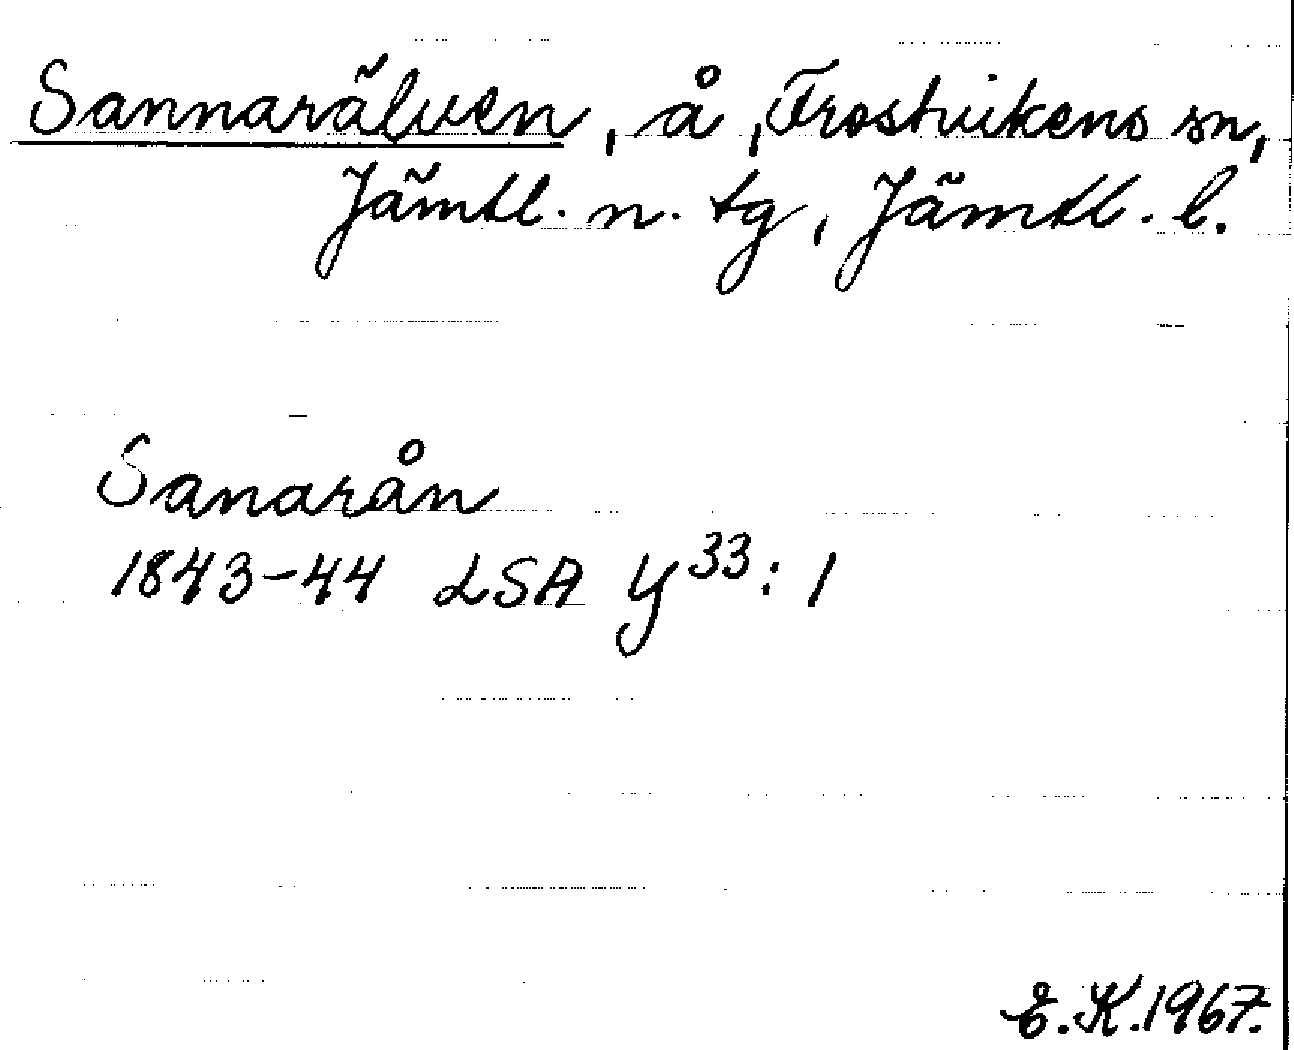 Sannarälven, å, Frostvikens sn,
Jämtl. n. tg, Jämtl. l.
Sanarån
1843-44 LSA Y³³: 1
E.K.1967.